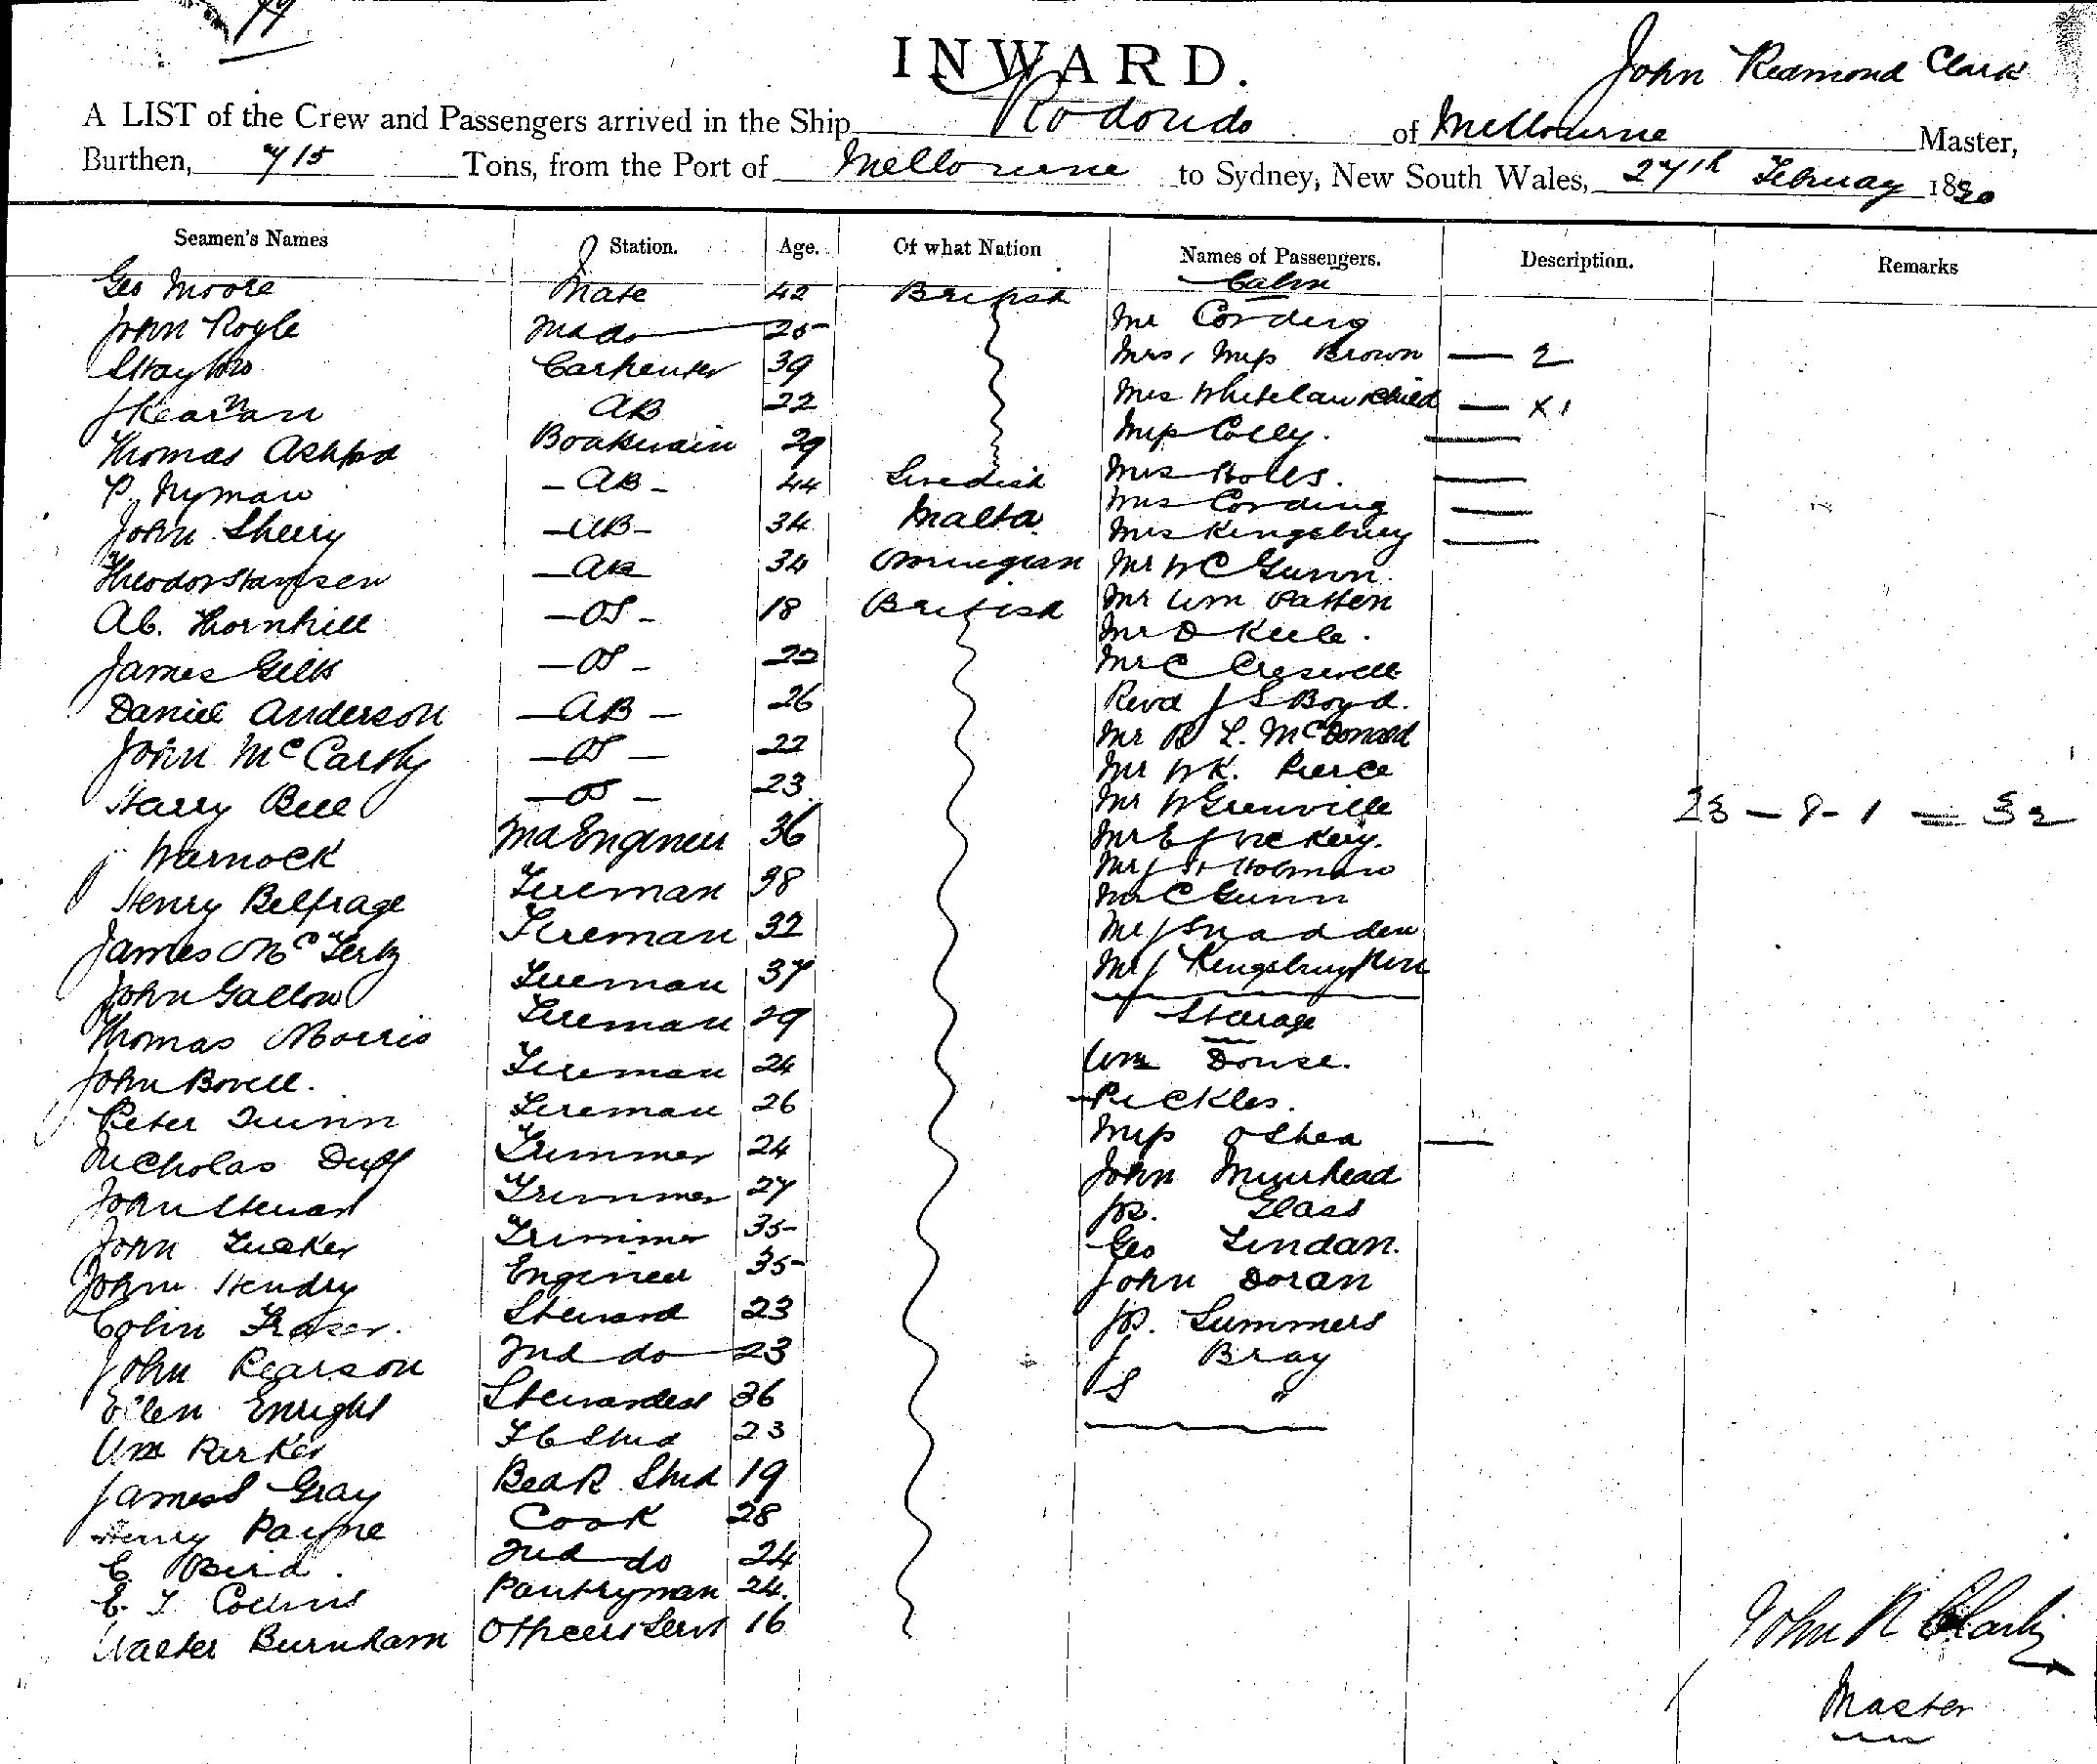 INWARD.
John Redmond Clark
A LIST of the Crew and Passengers arrived in the Ship Rodondo of Melbourne Master,
Burthen, 715 Tons, from the Port of Melbourne to Sydney, New South Wales, 27th February 1890
Seamen's Names Station. Age. Of what Nation Names of Passengers. Description. Remarks
Cabin
Geo Moore Mate 42 British
John Royle 2nd do 25 Mr Cording
Carpenter 39 Mrs, Miss Brown — 2
AB 22 Mrs Whitelaw & Child — x1
Thomas Ashford Boatswain 29 Miss Colly.
P. Nyman - AB - 44 Swedish Mrs
John Sherry - AB - 34 Malta Mrs Cording
Mrs Kingsbury
Theodor - AB 34 Mr W C Gunn.
Ab. Thornhill - OS - 18 British Mr Wm Patten
James Gilk - OS - 22 Mr D Keele.
Mr C Creswell
Daniel Anderson - AB - 26 Revd J S Boyd.
John McCarthy - OS - 22 Mr R L. McDonald
Harry Bell - OS - 23 Mr W K. Pierce
Mr W Grenville 23 - 8 - 1 = 32
J Warnock 2nd Engineer 36 Mr E J Vickery.
Mr J H Holman
Henry Belfrage Fireman 38 Mr C Gunn
James Mc Fireman 32 Mr J Snadden
John Gallow Fireman 37 Mr J Kingsbury
Steerage
Thomas Morris Fireman 29
John Bovell. Fireman 24 Wm Douse.
Peter Quinn Fireman 26 Pickles.
Nicholas Duff Trimmer 24 Miss O Shea
John Stewart Trimmer 27 John Muirhead
Jos. Glass
John Tucker Trimmer 35 Geo Lindan.
John Hendry Engineer 35 John Doran
Colin Fraser. Steward 23 Js. Summers
John Pearson 2nd do 23 J Bray
Ellen Enright Stewardess 36 S "
Wm Parker F C Stwd 23
James S Gray Bed R. Stwd 19
Henry Payne Cook 28
C. Bird. 2nd do 24
E. T. Collins Pantryman 24.
Walter Burnham Officers Servt 16
John R Clark
Master